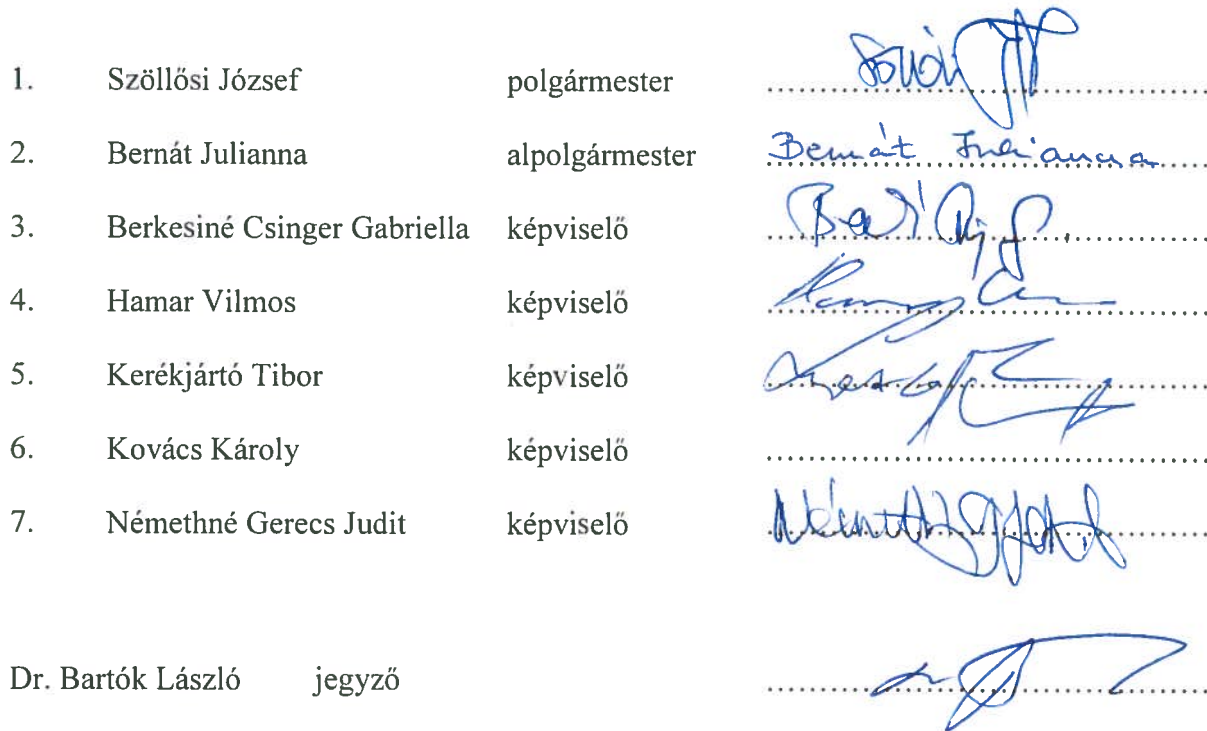 1. Szöllősi József polgármester ........................................
2. Bernát Julianna alpolgármester Bernát Julianna
3. Berkesiné Csinger Gabriella képviselő ........................................
4. Hamar Vilmos képviselő ........................................
5. Kerékjártó Tibor képviselő ........................................
6. Kovács Károly képviselő ........................................
7. Némethné Gerecs Judit képviselő ........................................
Dr. Bartók László jegyző ........................................